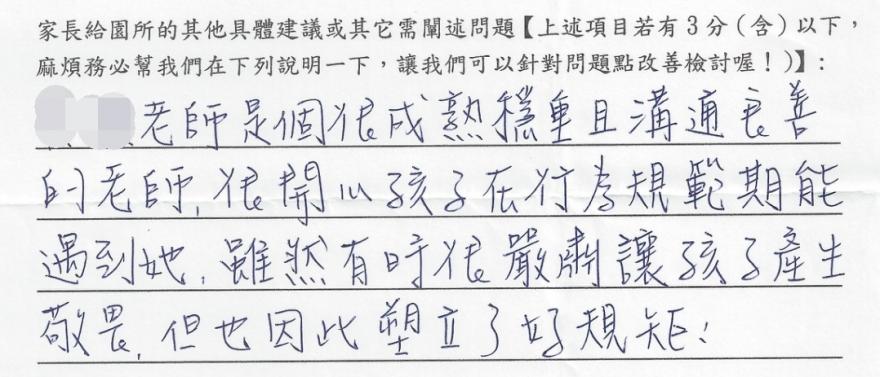 家長給園所的其他具體建議或其它需闡述問題【上述項目若有3分（含）以下，
麻煩務必幫我們在下列說明一下，讓我們可以針對問題點改善檢討喔！)】：
老師是個很成熟穩重且溝通良善
的老師,很開心孩子在行為規範期能
遇到她,雖然有時很嚴肅讓孩子產生
敬畏,但也因此塑立了好規矩!